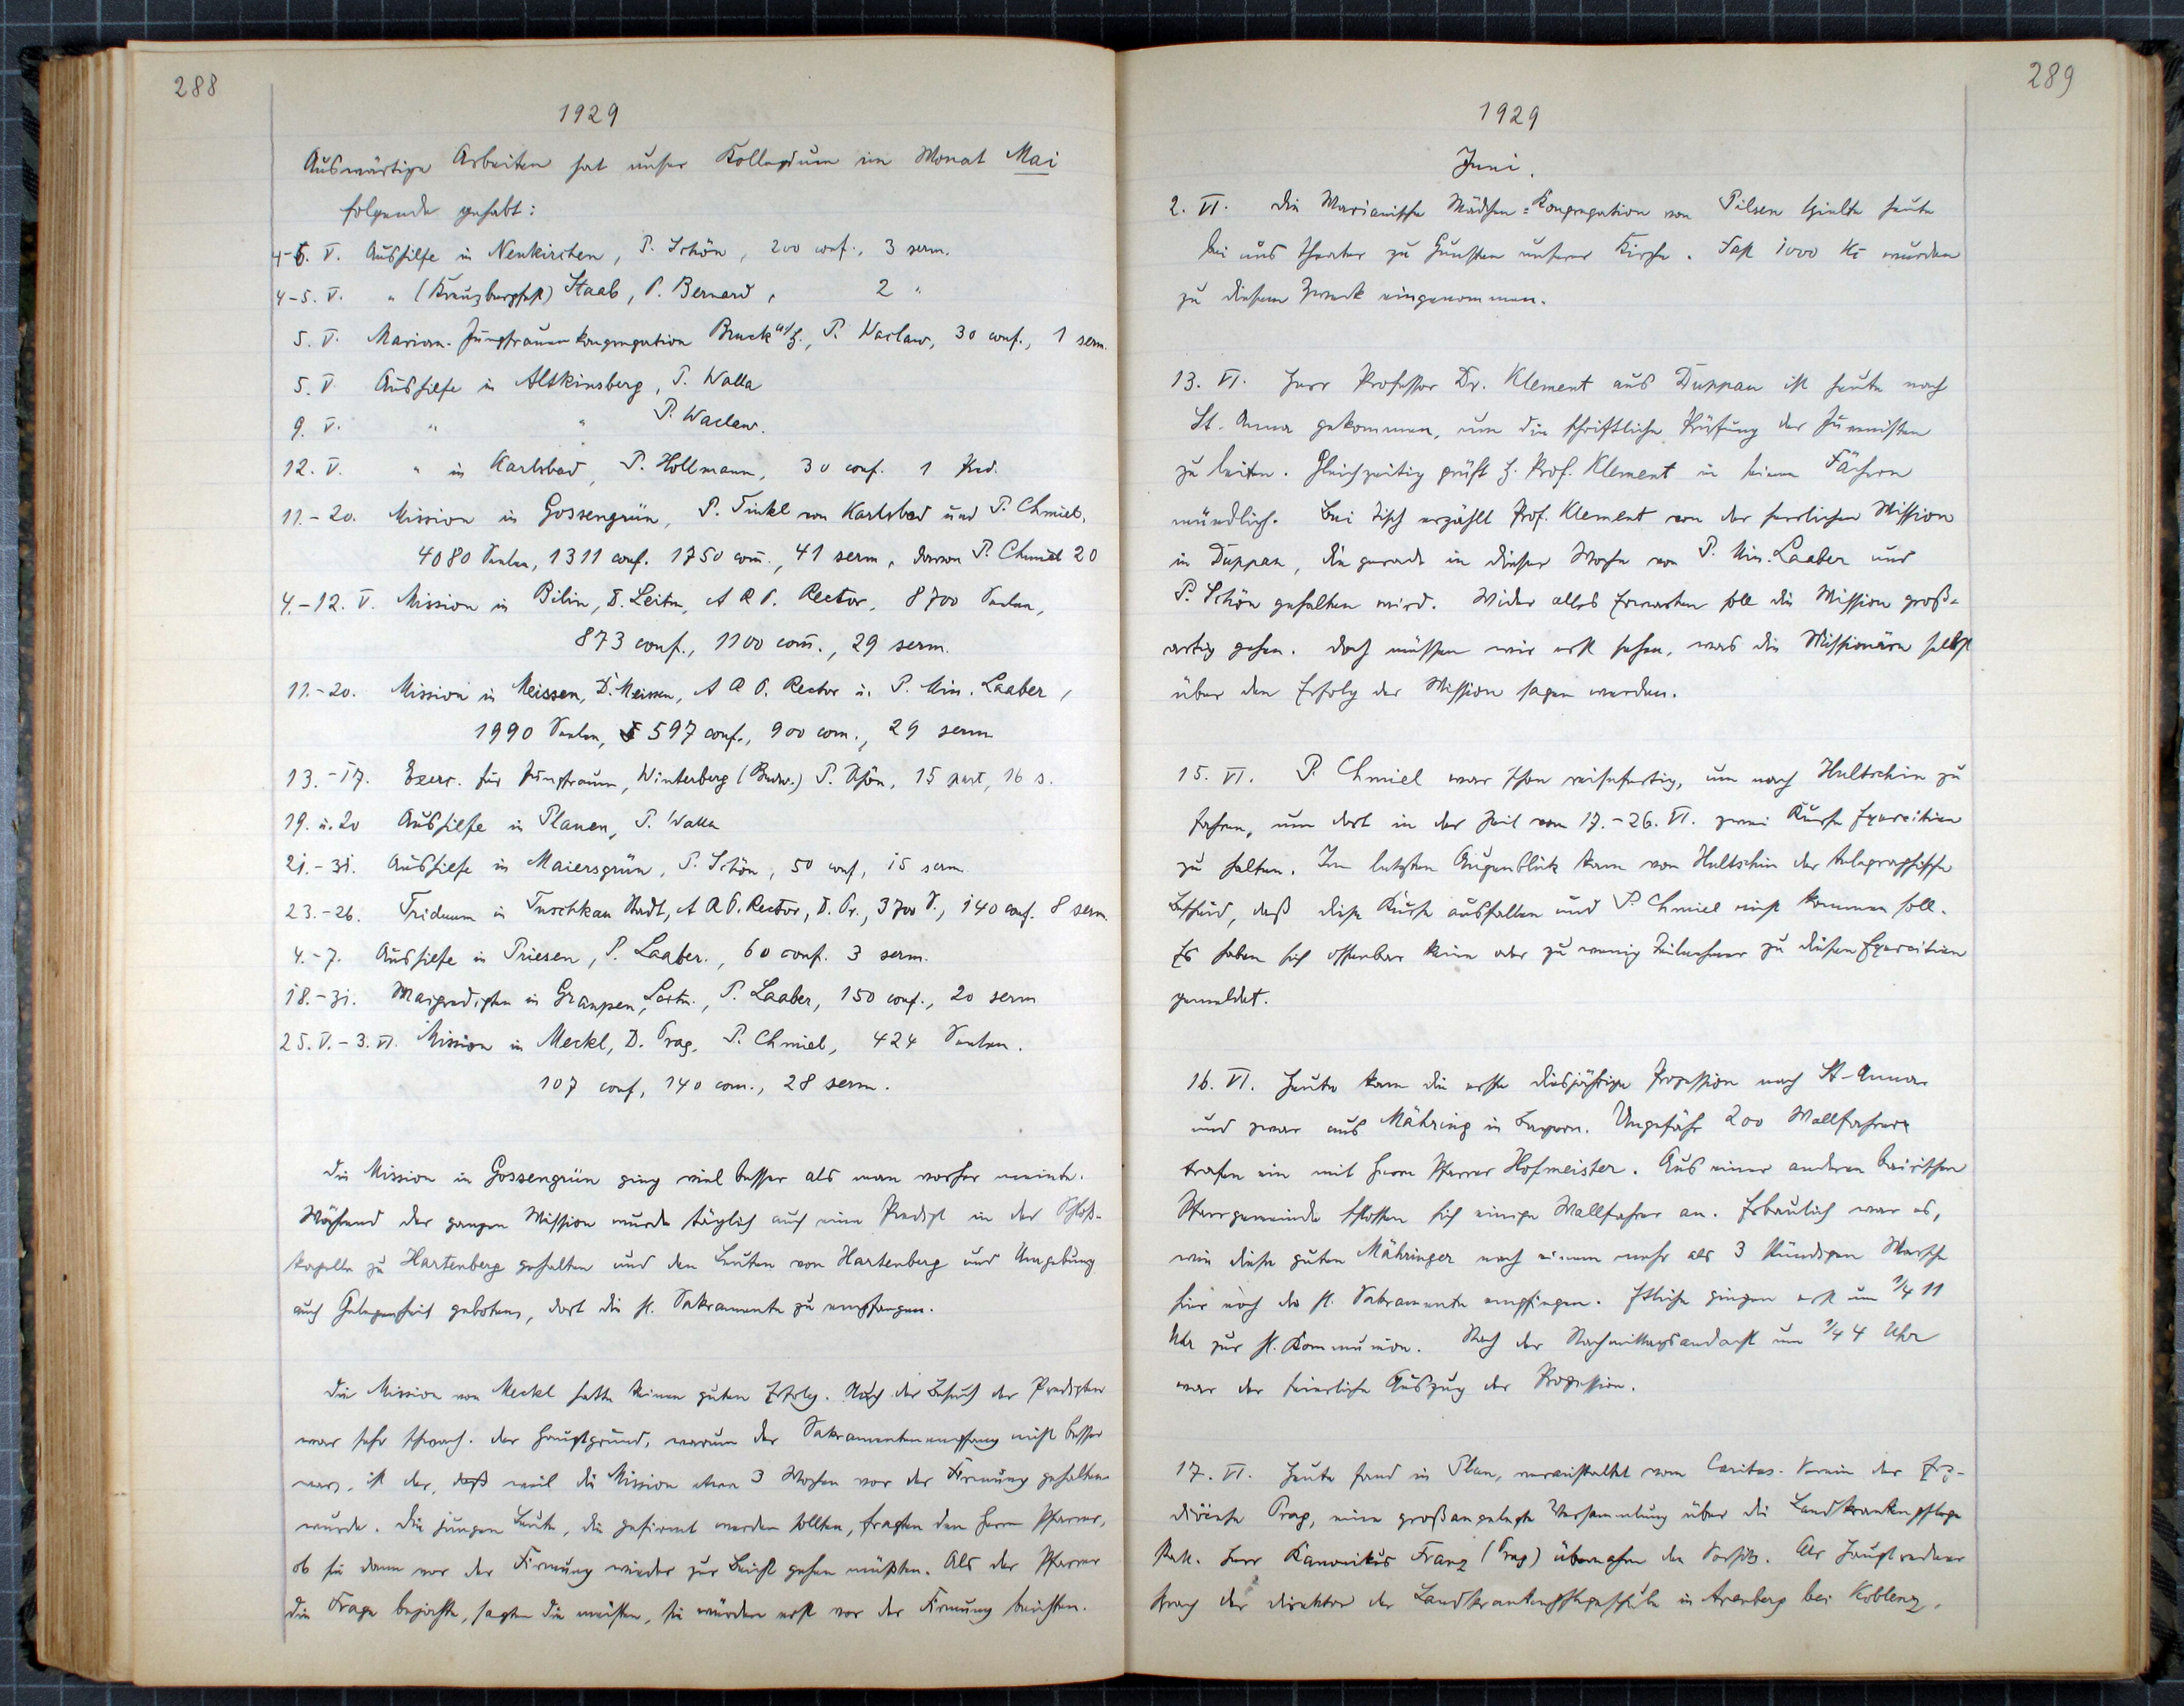 288
1929
Auswärtige Arbeiten hat unser Kollegium im Monat Mai
folgende gehabt:
4-5. V. Aushilfe in Neukirchen, P. Schön, 200 conf., 3 serm.
4-5. V. " (Kreuzbergfest) Staab, P. Bernard, 2 "
5. V. Marian. Jungfrauenkongregation Bruck a/H., P. Waclaw, 30 conf., 1 serm.
5. V. Aushilfe in Altkinsberg, P. Walla
9. V. " " P. Waclaw.
12. V. " in Karlsbad, P. Hollmann, 30 conf. 1 Pred.
11.-20. Mission in Gossengrün, P. Tinkl von Karlsbad und P. Chmiel,
4080 Seelen, 1311 conf. 1750 com̄., 41 serm, davon P. Chmiel 20
4.-12. V. Mission in Bilin, D. Leitm, A R P. Rector, 8700 Seelen,
873 conf., 1100 com̄., 29 serm.
11.-20. Mission in Meissen, D. Meissen, A R P. Rector u. P. Min. Laaber,
1990 Seelen, 597 conf., 900 com., 29 serm
13.-17. Exerc. für Jungfrauen, Winterberg (Budw.) P. Schön, 15 part, 16 s.
19. u. 20 Aushilfe in Planen, P. Walla
21.-31. Aushilfe in Maiersgrün, P. Schön, 50 conf, 15 serm
23.-26. Triduum in Tuschkau Stadt, A R P. Rector, D. Pr., 3700 S., 140 conf. 8 serm.
4.-7. Aushilfe in Priesen, P. Laaber., 60 conf. 3 serm.
18.-31. Maipredigten in Graupen, Leitm., P. Laaber, 150 conf., 20 serm
25. V.-3. VI. Mission in Meckl, D. Prag, P. Chmiel, 424 Seelen.
107 conf, 140 com., 28 serm.
Die Mission in Gossengrün ging viel besser als man vorher meinte.
Während der ganzen Mission wurde täglich auch eine Predigt in der Schloß-
kapelle zu Hartenberg gehalten und den Leuten von Hartenberg und Umgebung
auch Gelegenheit geboten, dort die hl. Sakramente zu empfangen.
Die Mission von Meckl hatte keinen guten Erfolg. Auch der Besuch der Predigten
war sehr schwach. Der Hauptgrund, warum der Sakramentenempfang nicht besser
war, ist der, daß weil die Mission etwa 3 Wochen vor der Firmung gehalten
wurde. Die jungen Leute, die gefirmt werden sollten, fragten den Herrn Pfarrer,
ob sie dann vor der Firmung wieder zur Beicht gehen müßten. Als der Pfarrer
die Frage bejahte, sagten die meisten, sie würden erst vor der Firmung beichten.
289
1929
Juni.
2. VI. Die Marianische Mädchen-Kongregation von Pilsen spielte heute
bei uns Theater zu Gunsten unserer Kirche. Fast 1000 Kč wurden
zu diesem Zweck eingenommen.
13. VI. Herr Professor Dr. Klement aus Duppau ist heute nach
St. Anna gekommen, um die schriftliche Prüfung der Juvenisten
zu leiten. Gleichzeitig prüft H. Prof. Klement in seinen Fächern
mündlich. Bei Tisch erzählt Prof. Klement von der herrlichen Mission
in Duppau, die gerade in dieser Woche von P. Min. Laaber und
P. Schön gehalten wird. Wider alles Erwarten soll die Mission groß-
artig gehen. Doch müssen wir erst sehen, was die Missionäre selbst
über den Erfolg der Mission sagen werden.
15. VI. P. Chmiel war schon reisefertig, um nach Hultschin zu
fahren, um dort in der Zeit vom 17.-26. VI. zwei Kurse Exercitien
zu halten. Im letzten Augenblick kam von Hultschin der telegraphische
Bescheid, daß diese Kurse ausfallen und P. Chmiel nicht kommen soll.
Es haben sich offenbar keine oder zu wenig Teilnehmer zu diesen Exercitien
gemeldet.
16. VI. Heute kam die erste diesjährige Prozession nach St. Anna
und zwar aus Mähring in Bayern. Ungefähr 200 Wallfahrer
trafen ein mit Herrn Pfarrer Hofmeister. Aus einer anderen bairischen
Pfarrgemeinde schlossen sich einige Wallfahrer an. Erbaulich war es,
wie diese guten Mähringer nach einem mehr als 3 stündigen Marsche
hier noch die hl. Sakramente empfingen. Etliche gingen erst um 3/4 11
Uhr zur hl. Kommunion. Nach der Nachmittagsandacht um 3/4 4 Uhr
war der feierliche Auszug der Prozession.
17. VI. Heute fand in Plan, veranstaltet vom Caritas-Verein der Erz-
diözese Prag, eine großangelegte Versammlung über die Landkrankenpflege
statt. Herr Kanonikus Franz (Prag) übernahm den Vorsitz. Als Hauptredner
sprach der Direktor der Landkrankenpflegeschule in Arenberg bei Koblenz,